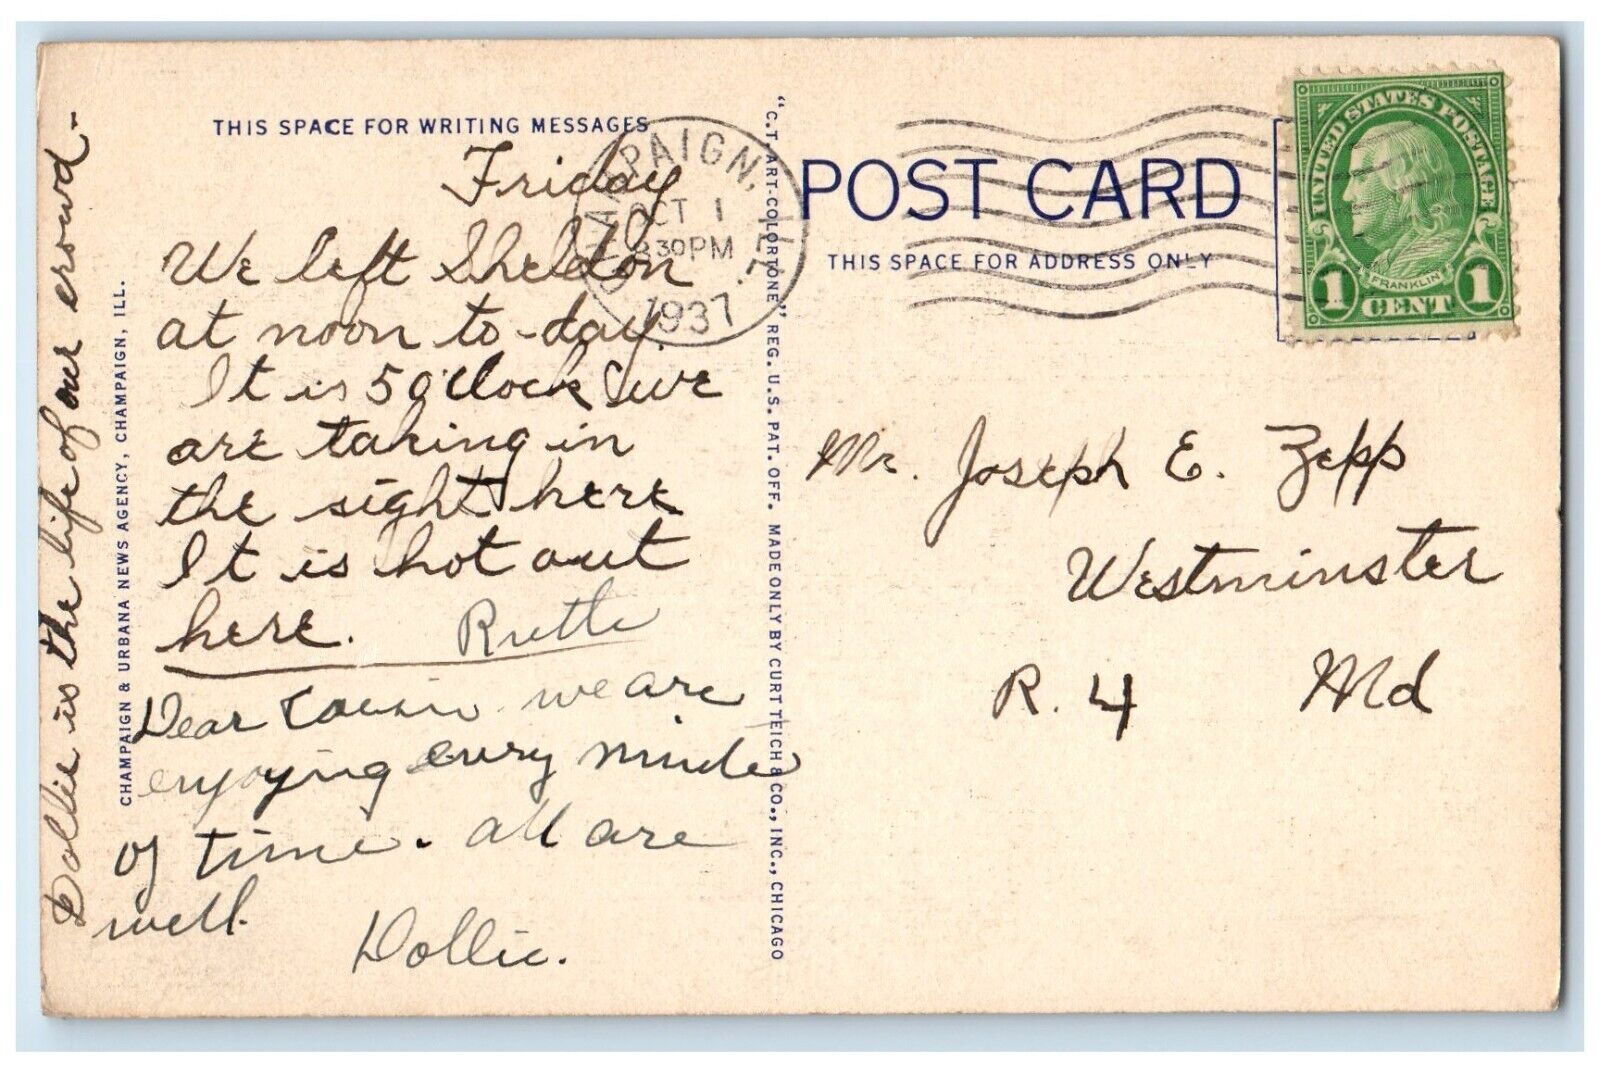 THIS SPACE FOR WRITING MESSAGES
Friday
We left Sheldon
at noon to-day.
It is 5 o'clock & we
are taking in
the sight here
It is hot out
here. Ruth
Dear Cousin we are
enjoying every minute
of time. all are
well.
Dollie.
Dollie is the life of our crowd-
CHAMPAIGN & URBANA NEWS AGENCY, CHAMPAIGN, ILL.
CHAMPAIGN, ILL.
OCT 1
8 30 PM
1937
"C.T. ART-COLORTONE" REG. U.S. PAT. OFF. MADE ONLY BY CURT TEICH & CO., INC., CHICAGO
POST CARD
THIS SPACE FOR ADDRESS ONLY
UNITED STATES POSTAGE
FRANKLIN
1 CENT 1
Mr. Joseph E. Zepp
Westminster
R. 4 Md